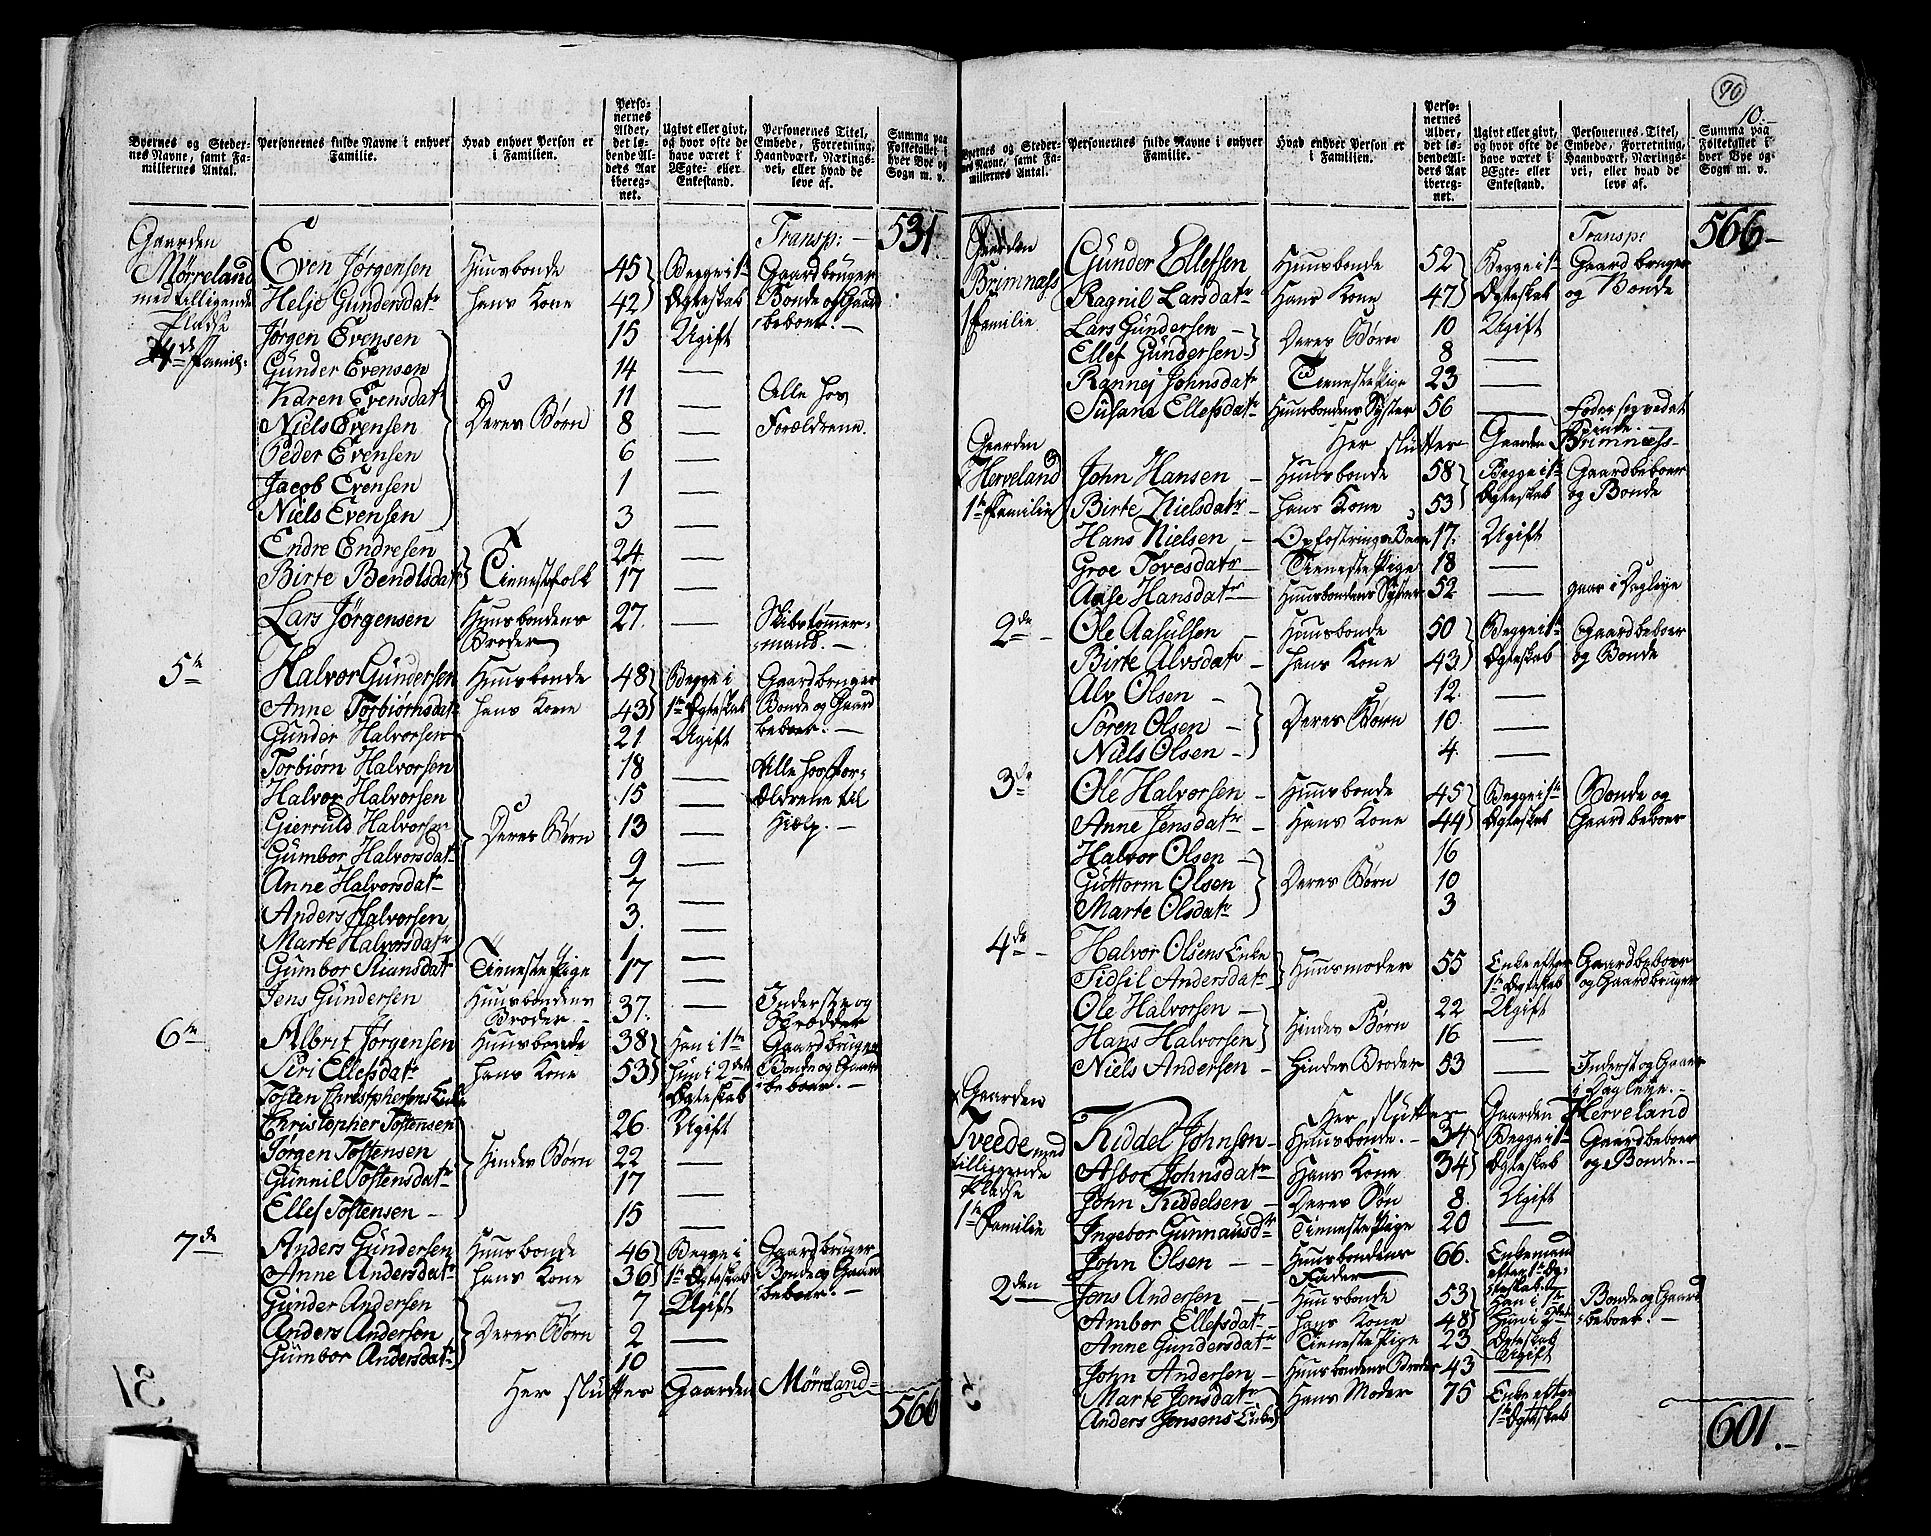 Byernes og Stedernes Navne, samt Familiernes Antal.
Personernes fulde Navne i enhver Familie.
Hvad enhver Person er i Familien.
Personernes Alder, det løbende Alders Aar iberegnet.
Ugivt eller givt, og hvor ofte de have været i Ægte- eller Enkestand.
Personernes Titel, Embede, Forretning, Haandværk, Næringsvei, eller hvad de leve af.
Summa paa Folketallet i hver Bye og Sogn m. v.
Transp: 531
Gaarden Mørreland med tilligende Pladse
4de Famil:
Even Jørgensen Huusbonde 45 Begge i 1te Ægteskab Gaardbruger Bonde og Gaardbeboer.
Helje Gundersdatr hans Kone 42
Jørgen Evensen 15 Ugift
Gunder Evensen 14 —
Karen Evensdatr 11 — Alle hos Forældrene.
Niels Evensen Deres Børn 8 —
Peder Evensen 6 —
Jacob Evensen 1 —
Niels Evensen 3 —
Endre Endresen 24 —
Birte Bendtsdatr Tienestefolk 17 —
Lars Jørgensen Huusbondens Broder 27. — Skibstømmermand.
5te Halvor Gundersen Huusbonde 48 Begge i 1te Ægteskab Gaardbruger Bonde og Gaardbeboer.
Anne Torbiørnsdatr hans Kone 43
Gunder Halvorsen 21 Ugift
Torbiørn Halvorsen 18 — Alle hos Forældrene til Hielp.
Halvor Halvorsen 15 —
Gierruld Halvorsen Deres Børn 13 —
Gumbor Halvorsdatr 9 —
Anne Halvorsdatr 7 —
Anders Halvorsen 3. —
Marte Halvorsdatr 1 —
Gumbor Stiansdatr Tieneste Pige 17 —
Jens Gundersen Huusbondens Broder 37. — Inderste og Skrædder
6te Albrit Jørgensen Huusbonde 38 Han i 1te Gaardbruger
Siri Ellefsdatr hans Kone 53 hun i 2det Ægteskab Bonde og Gaardbeboer.
Tosten Christophersens Enke
Christopher Tostensen 26. Ugift
Jørgen Tostensen Hindes Børn 22 —
Gunnil Tostensdatr 17 —
Ellef Tostensen 15 —
7de Anders Gundersen Huusbonde 46 Begge i 1te Ægteskab Gaardbruger Bonde og Gaardbeboer.
Anne Andersdatr hans Kone 36
Gunder Andersen 7 Ugift
Anders Andersen Deres Børn 2 —
Gumbor Andersdatr 10 —
Her slutter Gaarden Mørreland
566
90
10.
Byernes og Stedernes Navne, samt Familiernes Antal.
Personernes fulde Navne i enhver Familie.
Hvad enhver Person er i Familien.
Personernes Alder, det løbende Alders Aar iberegnet.
Ugivt eller givt, og hvor ofte de have været i Ægte- eller Enkestand.
Personernes Titel, Embede, Forretning, Haandværk, Næringsvei, eller hvad de leve af.
Summa paa Folketallet i hver Bye og Sogn m. v.
Transp: 566
Gaarden Brimnæss
1 Familie
Gunder Ellefsen Huusbonde 52 Begge i 1te Ægteskab Gaardbruger og Bonde
Ragnil Larsdatr Hans Kone 47
Lars Gundersen Deres Børn 10 Ugift
Ellef Gundersen 8 —
Rannej Johnsdatr Tieneste Pige 23 —
Susane Ellefsdatr Huusbondens Syster 56 — Føder seg ved at Spinde.
Her slutter Gaarden Brimnæss
Gaarden Herveland
1te Familie
John Hansen Huusbonde 58 Begge i 1te Ægteskab Gaardbeboer og Bonde
Birte Nielsdatr hans Kone 53
Hans Nielsen Opfostrings Barn 17. Ugift
Groe Tovesdatr Tieneste Pige 18 —
Aase Hansdatr Huusbondens Syster 52 — gaar i Dagleje
2de Ole Aasulsen Huusbonde 50 Begge i 1te Ægteskab Gaardbeboer og Bonde
Birte Alvsdatr hans Kone 43
Alv Olsen 12. —
Søren Olsen Deres Børn 10. —
Niels Olsen 4. —
3de Ole Halvorsen Huusbonde 45 Begge i 1te Ægteskab Bonde og Gaardbeboer
Anne Jensdatr Hans Kone 44
Halvor Olsen 16
Guttorm Olsen Deres Børn 10
Marte Olsdatr 3
4de Halvor Olsens Enke
Sidsil Andersdatr Huusmoder 55 Enke efter 1te Ægteskab Gaardbeboer og Gaardbruger
Ole Halvorsen Hindes Børn 22 Ugift
Hans Halvorsen 16 —
Niels Andersen Hindes Broder 53 — Inderst og Gaaer i Dagleje.
Her slutter Gaarden Herveland
Gaarden Tveede med tilliggende Pladse
1te Familie
Kiddel Johnsen Huusbonde. 34 Begge i 1te Ægteskab Gaardbeboer og Bonde.
Asbor Johnsdatr Hans Kone 34
John Kiddelsen Deres Søn 8. Ugift
Ingebor Gunnausdtr Tieneste Pige 20 —
John Olsen Huusbondens Fader 66. Enkemand efter 1te Ægteskab.
2den Jens Andersen Huusbonde 53 Han i 1te Bonde og Gaardbeboer.
Ambor Ellefsdatr hans Kone 48 Hun i 2det Ægteskab
Anne Gundersdatr Tieneste Pige 23
John Andersen Huusbondens Broder 43 Ugift
Marte Jensdatr Hans Moder 75 Enke efter 1te Ægteskab
Anders Jensens Enke
601.